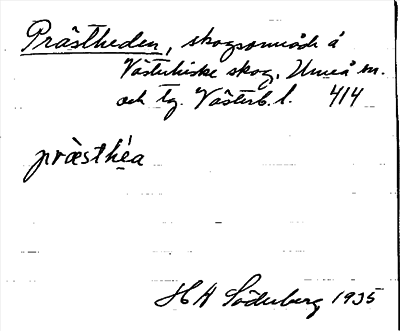 Prästheden, skogsområde å
Västerhiske skog, Umeå sn.
och tg. Västerb. l. 414
præsthéa
H H Söderberg 1935